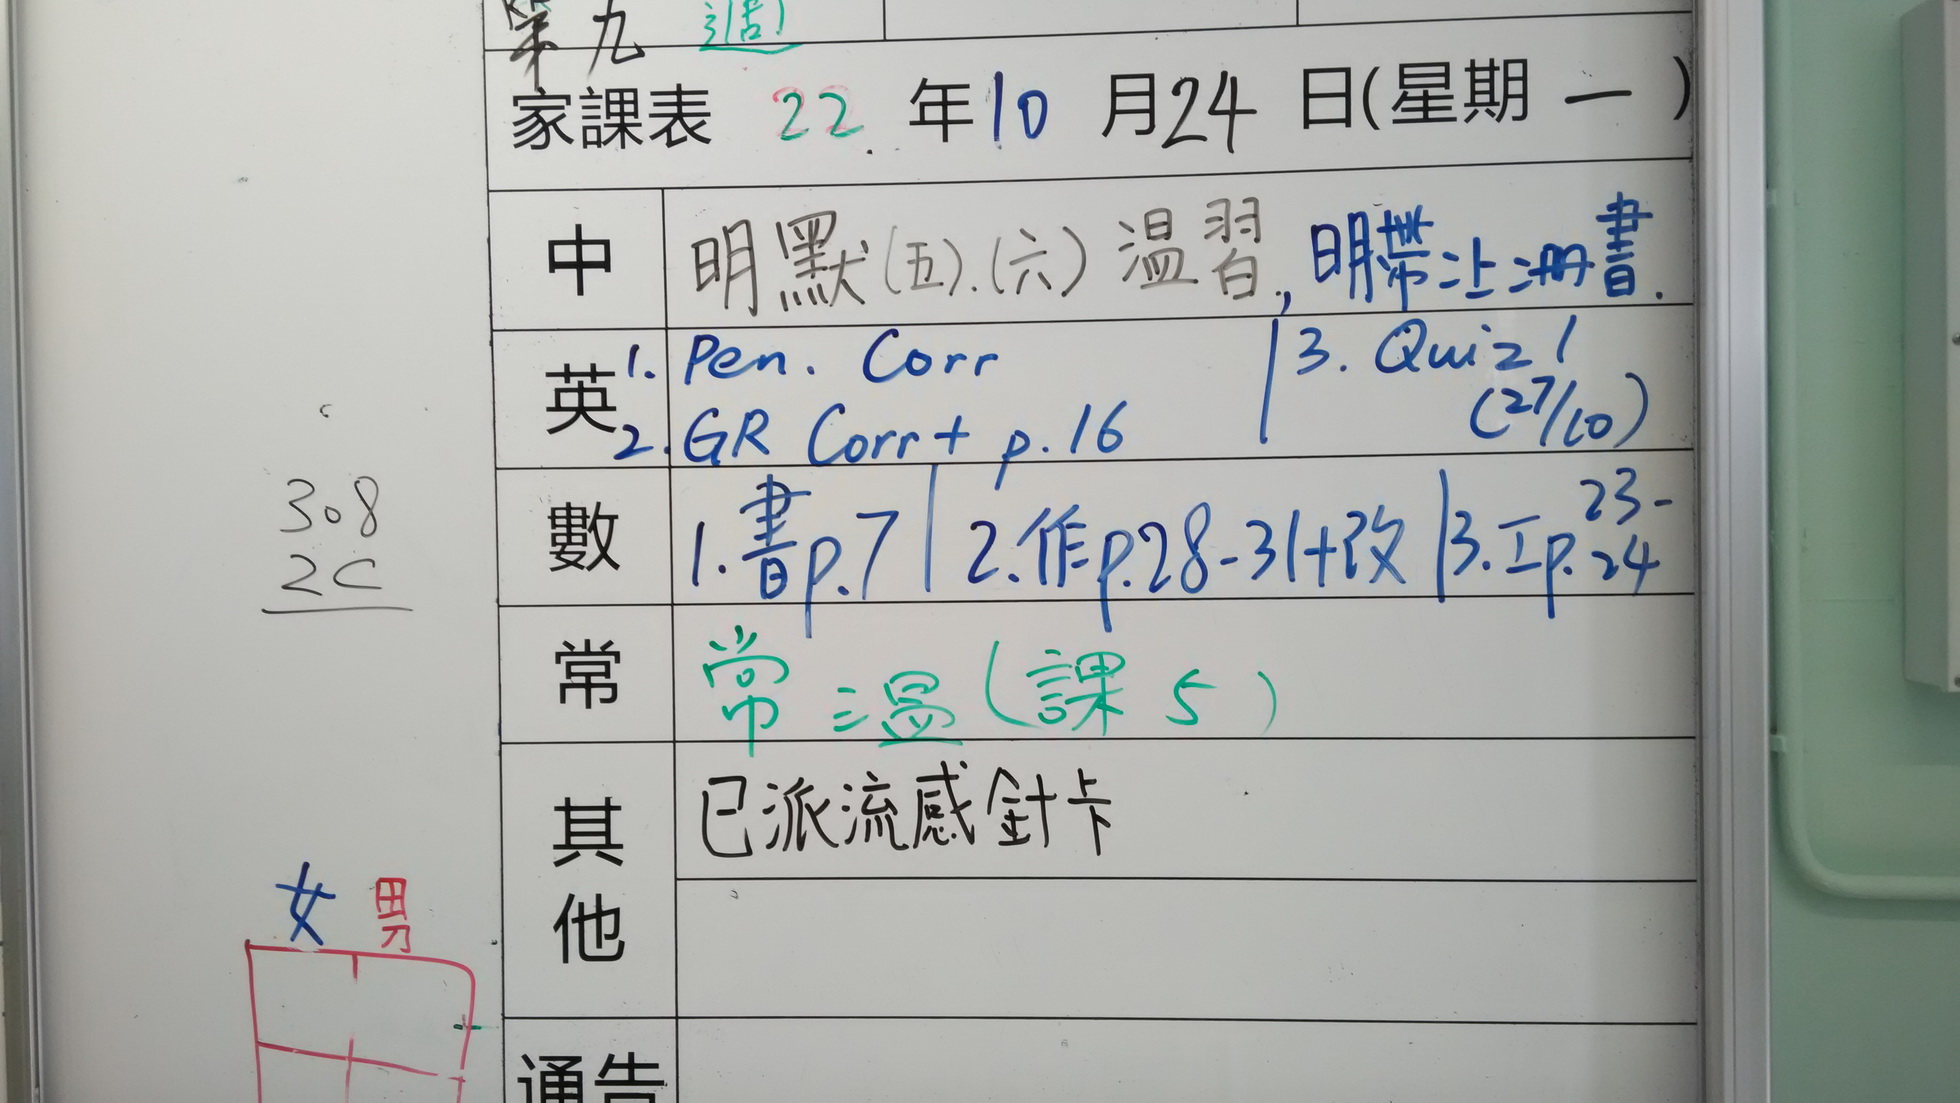 第九 週
家課表 22 年 10 月 24 日(星期 一 )
中 明默(五).(六) 温習, 明帶上冊書.
英 1. Pen. Corr | 3. Quiz 1
2. GR Corr + p.16 (27/10)
數 1. 書p.7 | 2. 作p.28-31+改 | 3. 工p.23-24
常 常温(課5)
其他 已派流感針卡
通告
308
2C
女 男